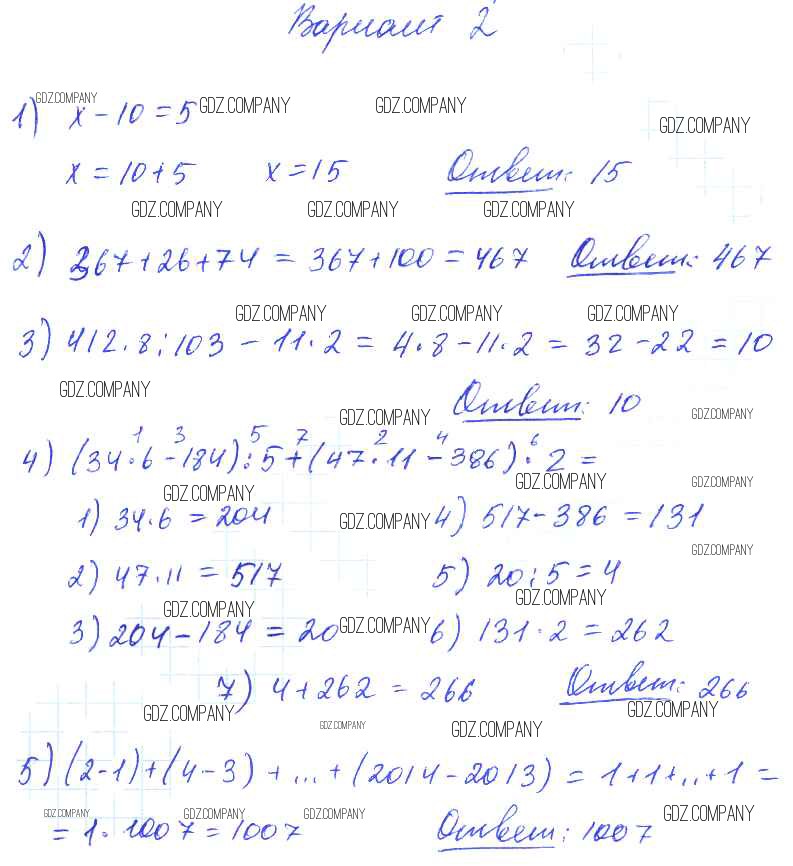 Вариант 2
GDZ.COMPANY
1) x - 10 = 5 GDZ.COMPANY GDZ.COMPANY GDZ.COMPANY
x = 10 + 5 x = 15 Ответ: 15
GDZ.COMPANY GDZ.COMPANY GDZ.COMPANY
2) 367 + 26 + 74 = 367 + 100 = 467 Ответ: 467
GDZ.COMPANY GDZ.COMPANY GDZ.COMPANY
3) 412 · 8 : 103 - 11 · 2 = 4 · 8 - 11 · 2 = 32 - 22 = 10
GDZ.COMPANY
GDZ.COMPANY Ответ: 10 GDZ.COMPANY
1 3 5 7 2 4 6
4) (34 · 6 - 184) : 5 + (47 · 11 - 386) · 2 =
GDZ.COMPANY GDZ.COMPANY GDZ.COMPANY
1) 34 · 6 = 204 GDZ.COMPANY 4) 517 - 386 = 131
GDZ.COMPANY
2) 47 · 11 = 517 5) 20 : 5 = 4
GDZ.COMPANY GDZ.COMPANY
3) 204 - 184 = 20 GDZ.COMPANY 6) 131 · 2 = 262
7) 4 + 262 = 266 Ответ: 266
GDZ.COMPANY GDZ.COMPANY GDZ.COMPANY GDZ.COMPANY
5) (2 - 1) + (4 - 3) + ... + (2014 - 2013) = 1 + 1 + .. + 1 =
GDZ.COMPANY GDZ.COMPANY GDZ.COMPANY GDZ.COMPANY
= 1 · 1007 = 1007 Ответ: 1007